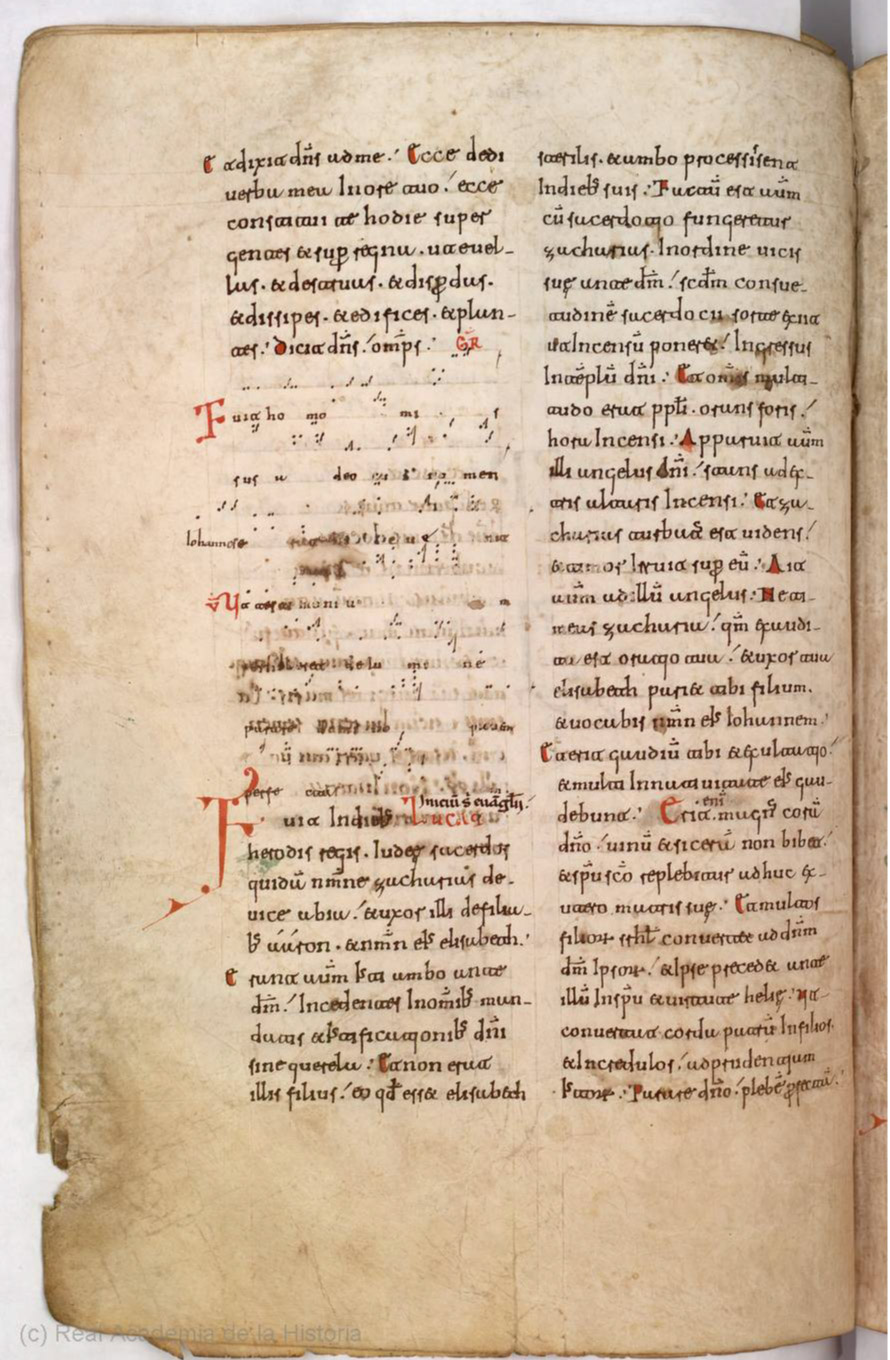 Et dixit dñs ad me. Ecce dedi
uerba mea In ore tuo. ecce
constitui te hodie super
gentes & sup̱ regna. ut euel-
las. & destruas. & disp̱das.
& dissipes. & edifices. & plan-
tes. Dicit dñs om̄ps. GR
Fuit ho mo mi s
sus a deo no men
Iohannes
V Ut testi moni u
lu mi ne
parare
perfe
Iniciū s̄ euāglīi
Fuit In dieb;
herodis regis. Iudeę sacerdos
quidā nm̄ne zacharias de
uice abia. & uxor illi de filia-
b; aaron. & nm̄n ei; elisabeth.
Erant aūm iusti ambo ante
dm̄. Incedentes In omīb; man-
datis & iustificationib; dñi
sine querela. Et non erat
illis filius. eo qđ ess& elisabeth
sterilis. & ambo processissent
In dieb; suis. Factū est aūm
cū sacerdotio fungeretur
zacharias. In ordine uicis
suę ante dm̄. scdm̄ consue-
tudinē sacerdocii sorte exiit
ut Incensū poner&. Ingressus
In tēplū dñi. Et om̄is multi-
tudo erat ppłi. orans foris.
hora Incensi. Apparuit aūm
illi angelus dñi. stans a dex-
tris altaris Incensi. Et za-
charias turbatus est uidens.
& timor Irruit sup̱ eū. Ait
aūm ad illū angelus. Ne ti-
meas zacharia. qm̄ exaudi-
ta est oratio tua. & uxor tua
elisabeth pari& tibi filium.
& uocabis nm̄n ei; Iohannem.
Et erit gaudiū tibi & exultatio.
& multi In natiuitate ei; gau-
debunt. Erit eni magn; corā
dño. uinū & sicerā non bib&.
& sp̄u scō replebitur adhuc ex
utero matris suę. Et multos
filior srhł conuertet ad dnm̄
dm̄ Ipsor. & Ipse preced& ante
illū In sp̄u & uirtute helię. Ut
conuertat corda patrū In filios.
& Incredulos. ad prudentiam
iustor. Parare dño. plebē p̱fectā.